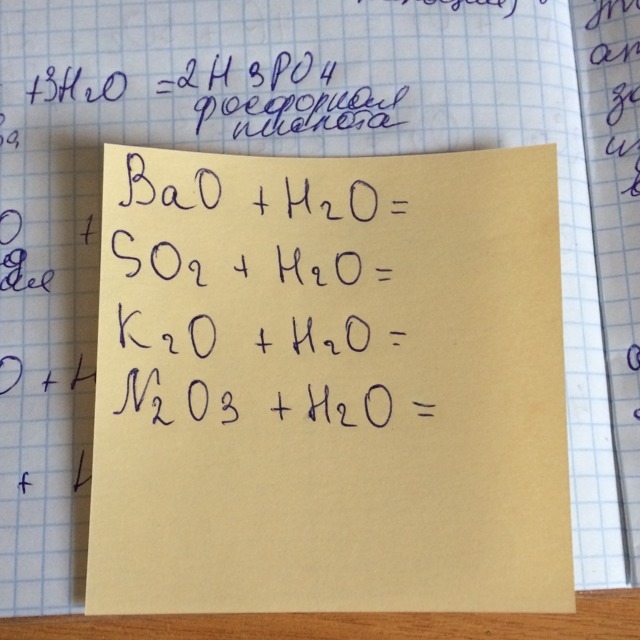 +3H2O = 2H3PO4
фосфорная
кислота
BaO + H2O =
SO2 + H2O =
K2O + H2O =
N2O3 + H2O =